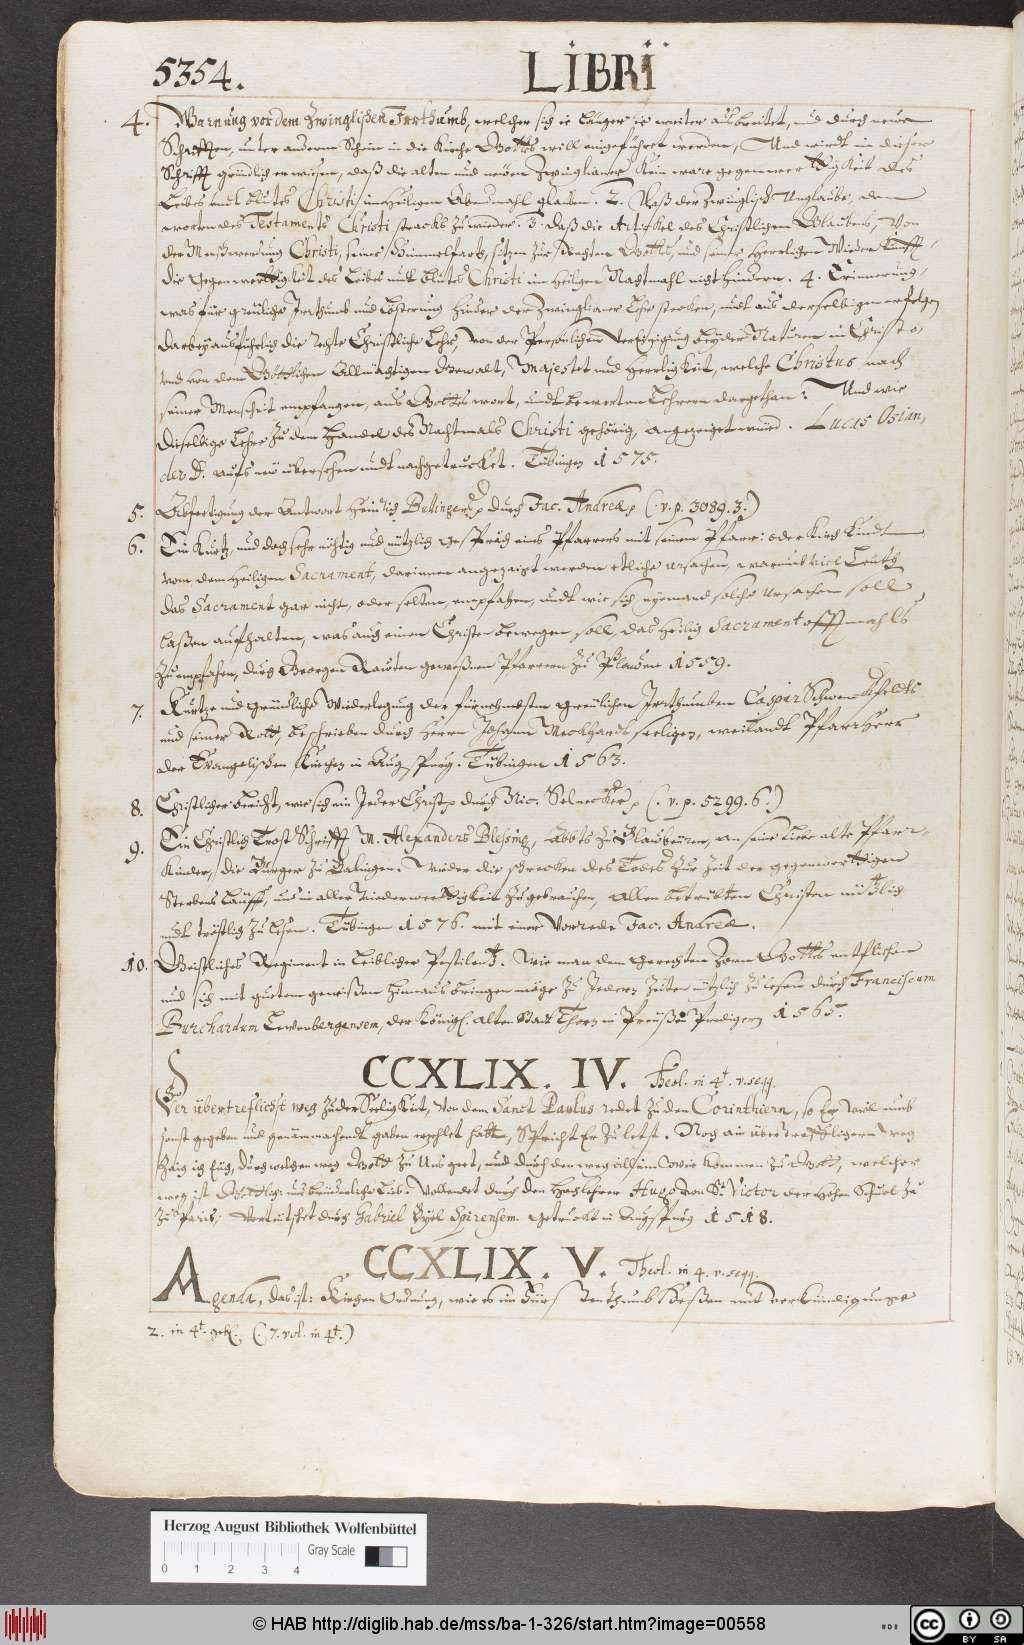 5354.
LIBRI
4. Warnung vor dem Zwinglischen Irrthumb, welcher sich ie lenger ie weiter ausbreitet, und durch neue
Schrifften, unter anderm Schein in die Kirche Gottes will eingeführt werden, Und wirdt in dieser
Schrifft gründlich erwiesen, daß die alten und neuen Zwinglianer kein ware gegenwertigkeit des
Leibes undt blutes Christi im heiligen Abendmahl glauben. 2. Daß der Zwinglisch Unglaube, dem
worten des Testaments Christi stracks zuwieder. 3. daß die Artickel des Christlichen Glaubens, Von
der Menschwerdung Christi, seiner Himmelfart, sitzen zur Rechten Gottes, und seiner Herrlichen Wiederkunfft,
die Gegenwertigkeit des Leibes undt blutes Christi im heiligen Nachtmahl nicht hindern. 4. Erinnerung,
was für greuliche Irrthumb und Lösterung hinder der Zwinglianer Lehr stecken, undt aus derselbigen erfolgen
darbey ausführlich die rechte Christliche Lehr, von der Persönlichen Vereinigung beyder Naturen in Christo,
und von dem Göttlichen Allmächtigen Gewalt, Majestet und Herrligkeit, welche Christus nach
seiner Menscheit empfangen, aus Gottes wort, undt bewerten Lehrern dargethan. Und wie
dieselbige Lehre zu dem Handel des Nachtmals Christi gehörig, angezeiget würd. Lucas Osian,
der D. aufs neü übersehen undt nachgetrucket. Tübingen 1575.
5. Abfertigung der Antwort Heinrich Bullingers durch Jac. Andreæ, (: v. p. 3089. 3.)
6. Ein kurtz, und doch sehr nöhtig und nützlich gespräch eines Pfarrers mit seinem Pfarr: oder Kirch kindt
von dem heiligen Sacrament, darinnen angezaigt werden etliche ursachen, warumb viel Leuth
das Sacrament gar nicht, oder selten, empfahen, undt wie sich niemand solche ursachen soll
laßen aufhalten, was auch einen Christen bewegen soll, das heilig Sacrament offtmahls
zu empfahen, durch Georgen Rauten gewesenen Pfarrern zu Plawen 1559.
7. Kurtze und gründliche Wiederlegung der fürnehmsten greülichen Irrthumben Caspar Schwenckfeldts
und seiner Rott, beschrieben durch Herrn Johann Meckhardt seeligen, weilandt Pfarrherr
der Evangelischen Kirchen in Augspurg. Tübingen 1563.
8. Christlicher bericht, wie sich ein Jeder Christ durch Nic. Selnecker, (: v. p. 5299. 6.)
9. Ein Christlich Trost Schrifft M. Alexanders Blessing, Abbts zu Blaubeuren, an seine liebe alte Pfarr-
Kinder, die Bürger zu Balingen. Wieder die schrecken des Todes zur Zeit der gegenwertigen
Sterbens Läufft, und in aller wiederwertigkeit zugebrauchen, allen betrübten Christen nützlich
undt tröstlich zu lesen. Tübingen 1576. mit einer Vorrede Jac. Andreæ.
10. Geistliches Regiment in Leiblicher Pestilentz. Wie man dem gerechten Zorn Gottes entfliehen
und sich mit guetem gewissen hinnaus bringen möge zu Jedern Zeiten nützlich zu lesen durch Franciscum
Burchardum Lewenbergensem, der Königl. alten Stadt Thorn in Preüßen Predigern 1565.
CCXLIX. IV. Theol. in 4t. v. seqq.
Der übertreflichst weg zu der Seeligkeit, Von dem Sanct Paulus redet zu den Corinthiern, so Er Vail umb
sonst gegeben und genänmachendt gaben erzehlet hatt, Spricht Er zu letst. Noch ain übertreffligern weg
Zaig ich Eüch, durch welchen weg Gott zu Uns geet, und durch den weg allein wir kommen zu Gott, welcher
weg ist Göttlich und brüderliche Lieb. Vollendet durch den Hochlehrer Hugo von St. Victor der hohen Schuel zu
zu Paris, Verteutschet durch Gabriel Zyel Spirensem. Getruckt in Augspurg 1518.
CCXLIX. V. Theol. in 4. v. seqq.
Agenda, das ist: Kirchen Ordnung, wie es im Fürstenthumb Heßen mit verkündigunge
2. in 4t. gehl. (: 7. vol. in 4t.)
Herzog August Bibliothek Wolfenbüttel
Gray Scale
0 1 2 3 4
© HAB http://diglib.hab.de/mss/ba-1-326/start.htm?image=00558
cc BY SA